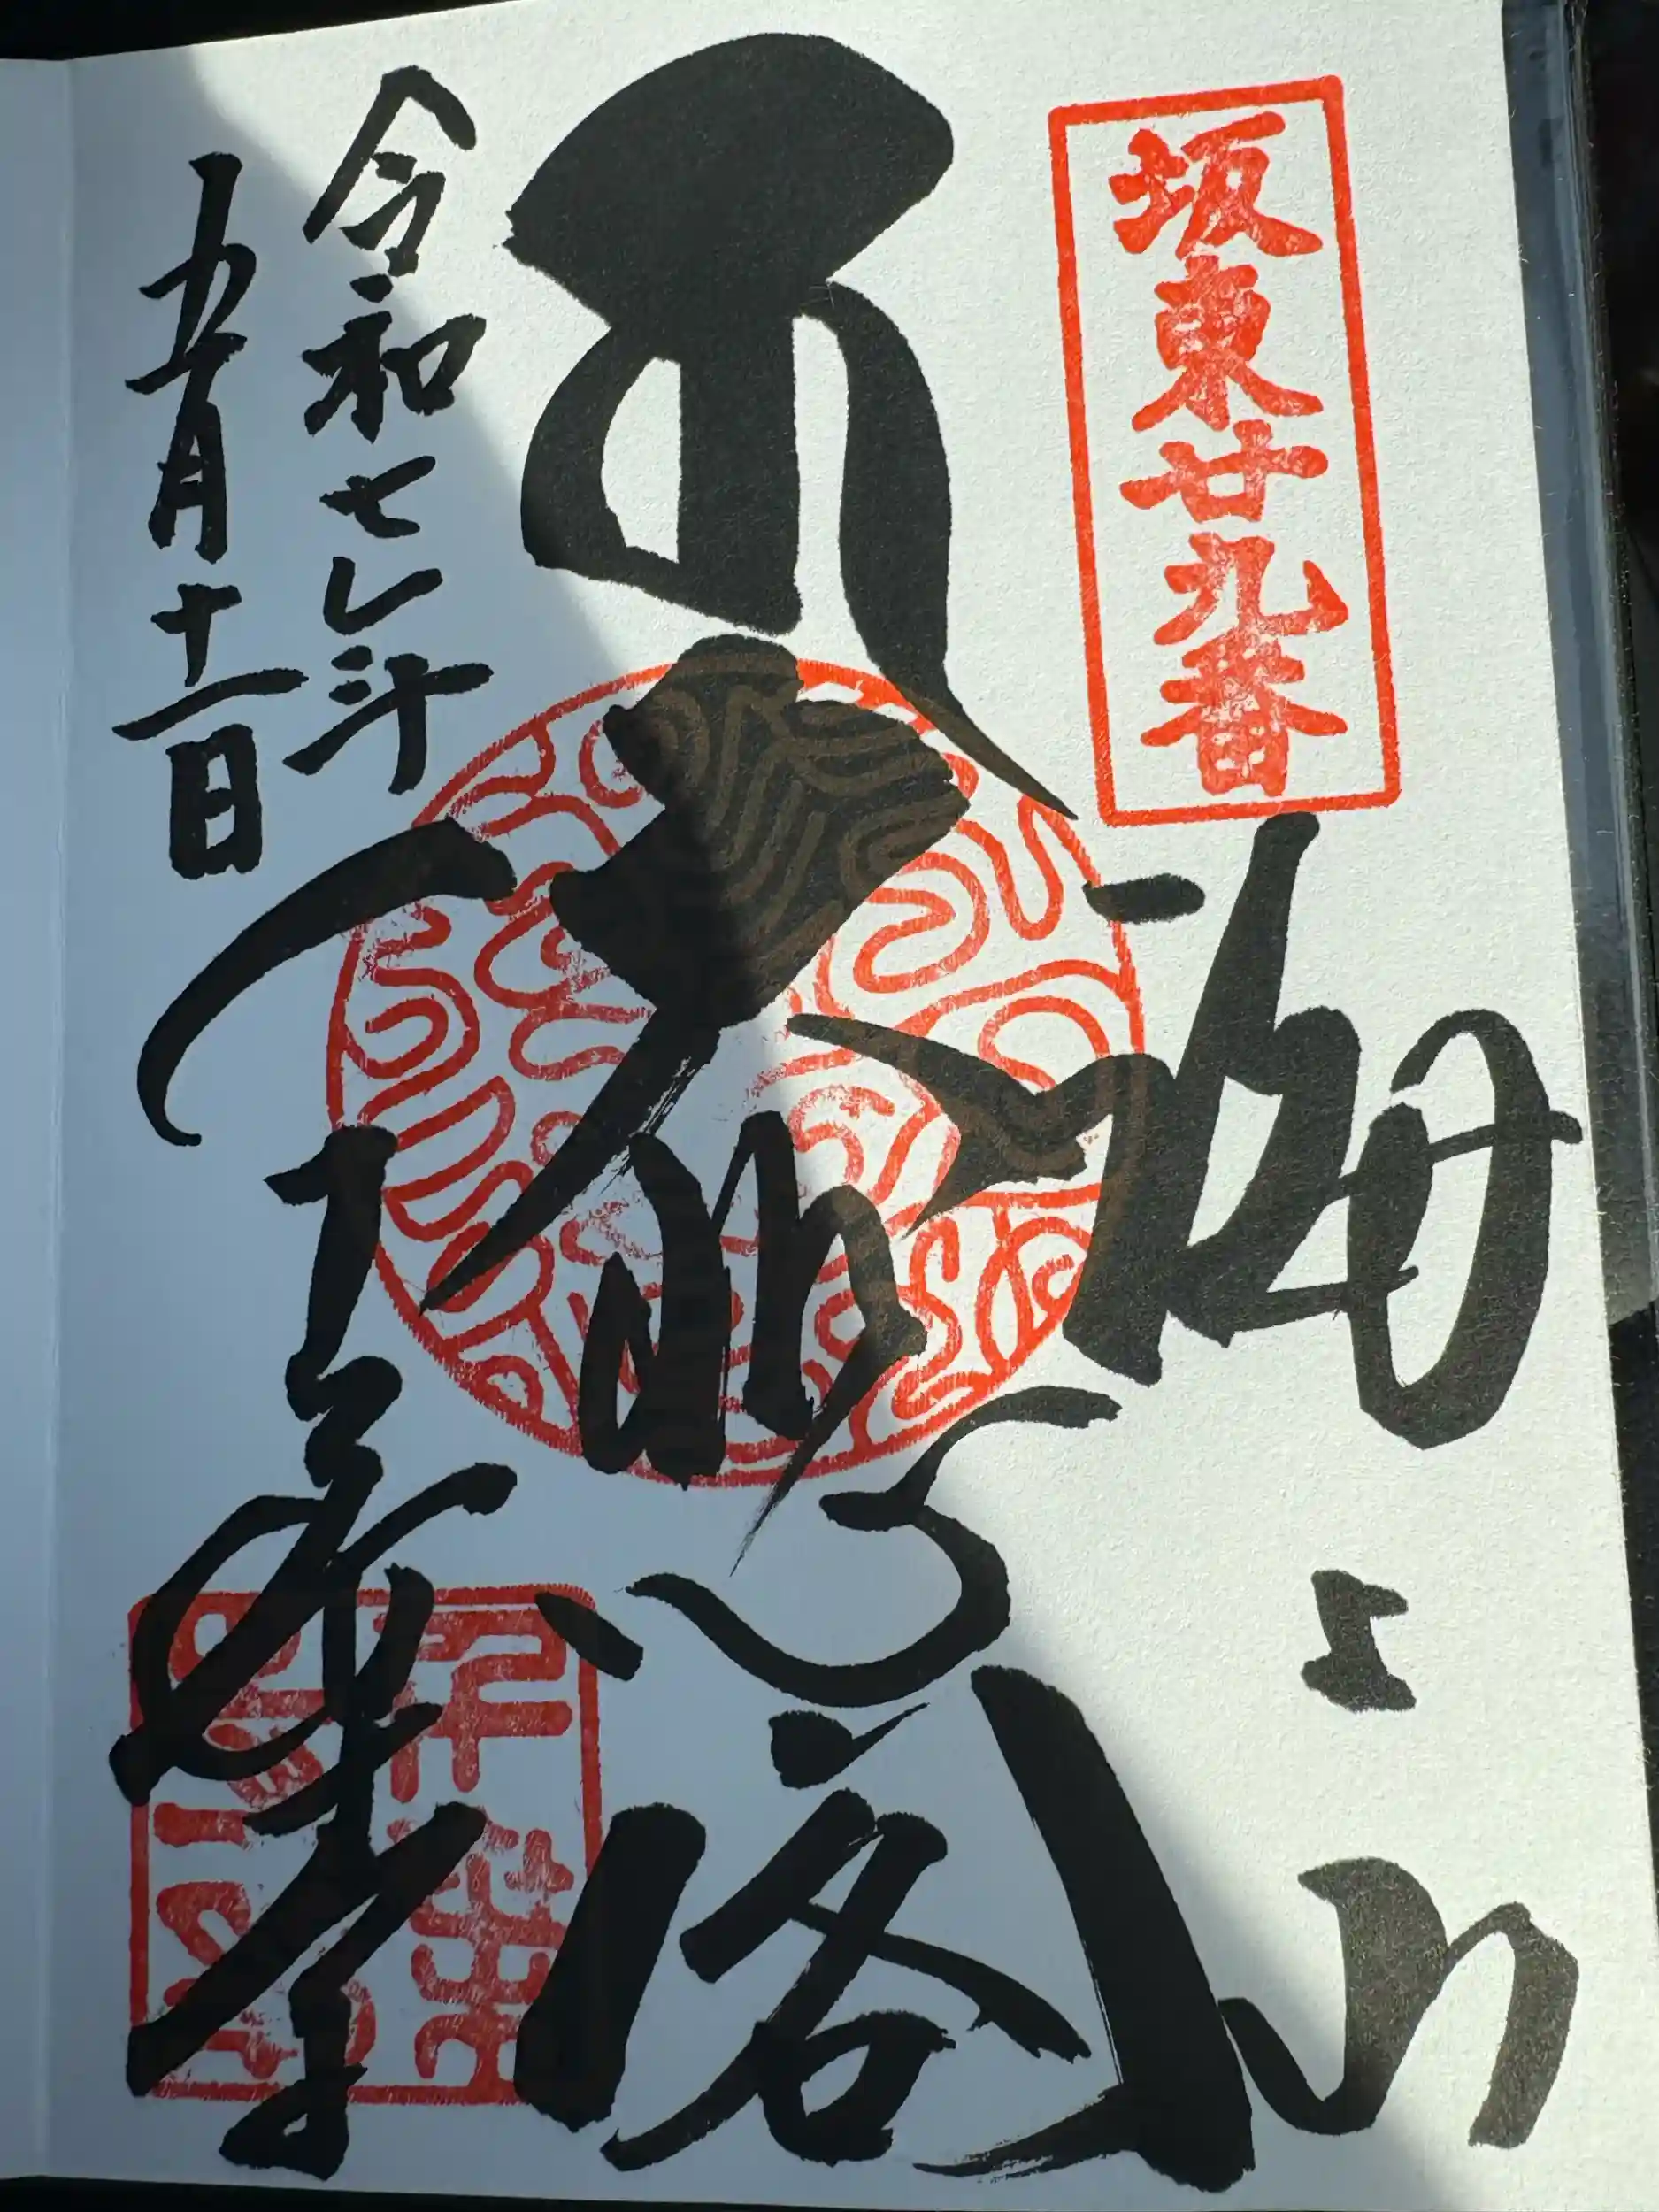 坂東廿九番
海上山
大悲閣
令和七年
九月十一日
千葉寺